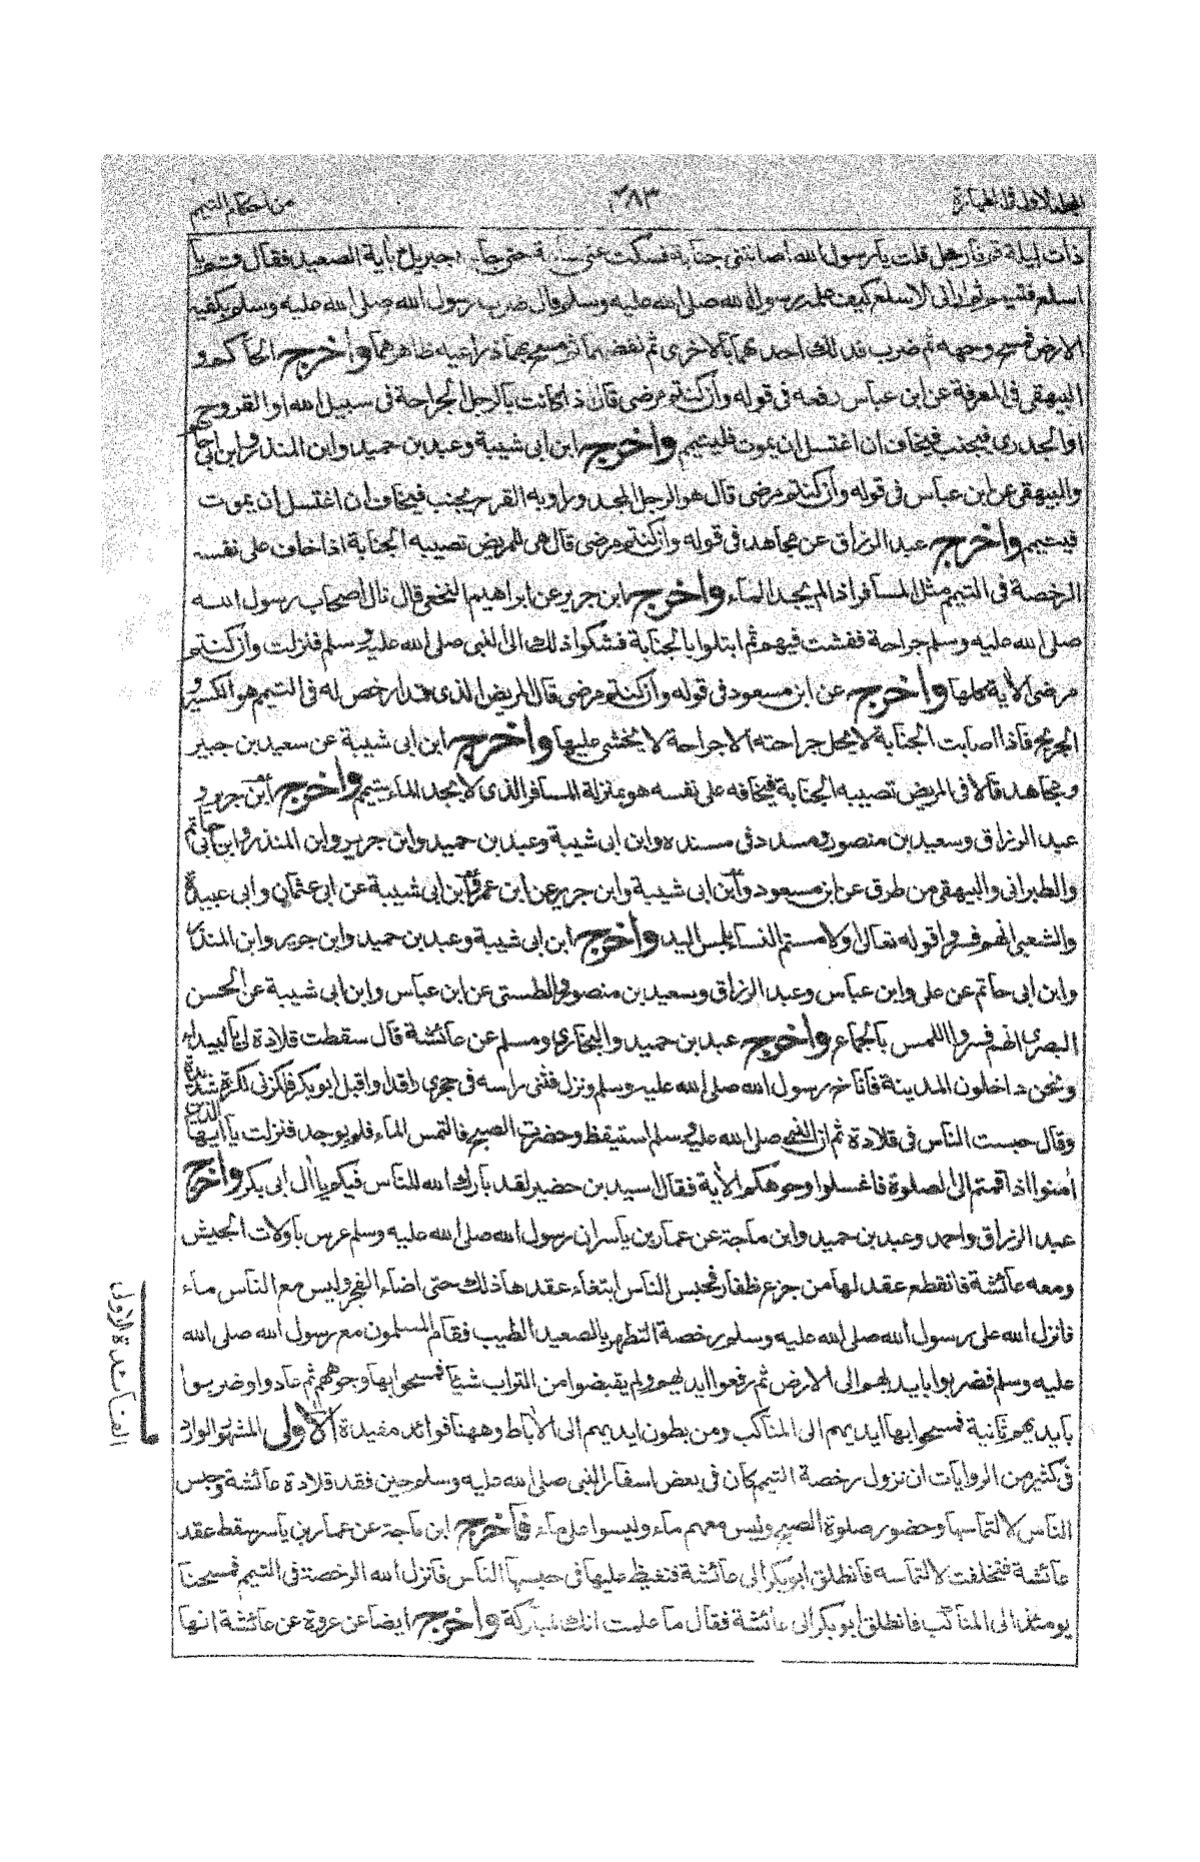 المجلد الاول فى الطهارة
٢٨٣
من احكام التيمم
ذات ليلة قم فارحل قلت يا رسول الله اصابتنى جنابة فسكت عنى ساعة حتى جاءه جبريل بأية الصعيد فقال قم يا
اسلع فتيمم ثم ارانى الاسلع كيف علمه رسول الله صلى الله عليه وسلم قال ضرب رسول الله صلى الله عليه وسلم بكفيه
الارض فمسح وجهه ثم ضرب فدلك احدهما بالاخرى ثم نفضهما ثم مسح بهما ذراعيه ظاهرهما واخرج الحاكم و
البيهقى فى المعرفة عن ابن عباس رفعه فى قوله وان كنتم مرضى قال اذا كانت بالرجل الجراحة فى سبيل الله او القروح
او الجدرى فيجنب فيخاف ان اغتسل ان يموت فليتيمم واخرج ابن ابى شيبة وعبد بن حميد وابن المنذر وابن ابى حاتم
والبيهقى عن ابن عباس فى قوله وان كنتم مرضى قال هو الرجل المجدور او به القرح يجنب فيخاف ان اغتسل ان يموت
فيتيمم واخرج عبد الرزاق عن مجاهد فى قوله وان كنتم مرضى قال هى للمريض تصيبه الجنابة اذا خاف على نفسه
الرخصة فى التيمم مثل المسافر اذا لم يجد الماء واخرج ابن جرير عن ابراهيم النخعى قال نال اصحاب رسول الله
صلى الله عليه وسلم جراحة ففشت فيهم ثم ابتلوا بالجنابة فشكوا ذلك الى النبى صلى الله عليه وسلم فنزلت وان كنتم
مرضى الاية كلها واخرج عن ابن مسعود فى قوله وان كنتم مرضى قال المريض الذى قد ارخص له فى التيمم هو الكسير و
الجريح فاذا اصابت الجنابة لا يحل جراحته الا جراحة لا يخشى عليها واخرج ابن ابى شيبة عن سعيد بن جبير
ومجاهد قالا فى المريض تصيبه الجنابة فيخافه على نفسه هو بمنزلة المسافر الذى لا يجد الماء يتيمم واخرج ابن جرير و
عبد الرزاق وسعيد بن منصور ومسدد فى مسنده وابن ابى شيبة وعبد بن حميد وابن جرير وابن المنذر وابن ابى حاتم
والطبرانى والبيهقى من طرق عن ابن مسعود وابن ابى شيبة وابن جرير عن ابن عمر وابن ابى شيبة عن ابى عثمان وابى عبيدة
والشعبى انهم فسروا قوله تعالى او لامستم النساء بلمس اليد واخرج ابن ابى شيبة وعبد بن حميد وابن جرير وابن المنذر
وابن ابى حاتم عن على وابن عباس وعبد الرزاق وسعيد بن منصور والطستى عن ابن عباس وابن ابى شيبة عن الحسن
البصرى انهم فسروا اللمس بالجماع واخرج عبد بن حميد والبخارى ومسلم عن عائشة قال سقطت قلادة لى بالبيداء
ونحن داخلون المدينة فاناخ رسول الله صلى الله عليه وسلم ونزل فثنى راسه فى حجرى راقدا واقبل ابو بكر فلكزنى لكزة شديدة
وقال حبست الناس فى قلادة ثم ان النبى صلى الله عليه وسلم استيقظ وحضرت الصبح فالتمس الماء فلم يوجد فنزلت يا ايها الذين
امنوا اذا قمتم الى الصلوة فاغسلوا وجوهكم الاية فقال اسيد بن حضير لقد بارك الله للناس فيكم يا ال ابى بكر واخرج
عبد الرزاق واحمد وعبد بن حميد وابن ماجة عن عمار بن ياسر ان رسول الله صلى الله عليه وسلم عرس باولات الجيش
ومعه عائشة فانقطع عقد لها من جزع ظفار فحبس الناس ابتغاء عقدها ذلك حتى اضاء الفجر وليس مع الناس ماء
فانزل الله على رسول الله صلى الله عليه وسلم رخصة التطهر بالصعيد الطيب فقام المسلمون مع رسول الله صلى الله
عليه وسلم فضربوا بايديهم الى الارض ثم رفعوا ايديهم ولم يقبضوا من التراب شيئا فمسحوا بها وجوههم ثم عادوا وضربوا
بايديهم ثانية فمسحوا بها ايديهم الى المناكب ومن بطون ايديهم الى الأباط وههنا فوائد مفيدة الاولى المشهور الوارد
فى كثير من الروايات ان نزول رخصة التيمم كان فى بعض اسفار النبى صلى الله عليه وسلم حين فقد قلادة عائشة وحبس
الناس لالتماسها وحضور صلوة الصبح وليس معهم ماء وليسوا على ماء فأخرج ابن ماجة عن عمار بن ياسر سقط عقد
عائشة فتخلفت لالتماسه فانطلق ابو بكر الى عائشة فتغيظ عليها فى حبسها الناس فانزل الله الرخصة فى التيمم فمسحنا
يومئذ الى المناكب فانطلق ابو بكر الى عائشة فقال ما علمت انك لمباركة واخرج ايضا عن عروة عن عائشة انها
الفائدة الاولى